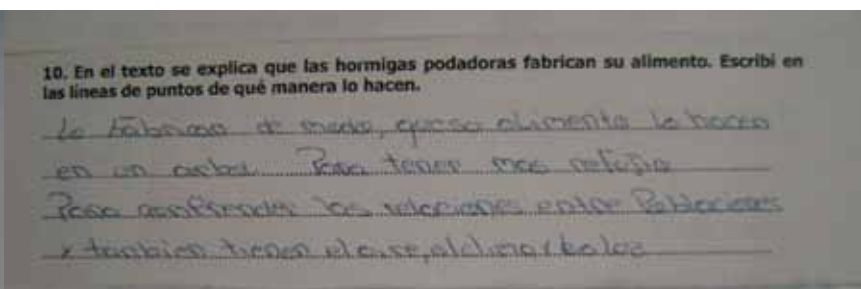 10. En el texto se explica que las hormigas podadoras fabrican su alimento. Escribí en
las líneas de puntos de qué manera lo hacen.
Lo fabrican de modo, que su alimento lo hacen
en un arbol Para tener mas refugio
Para las relaciones entre Poblaciones
y tambien tienen el aire, el clima y la luz